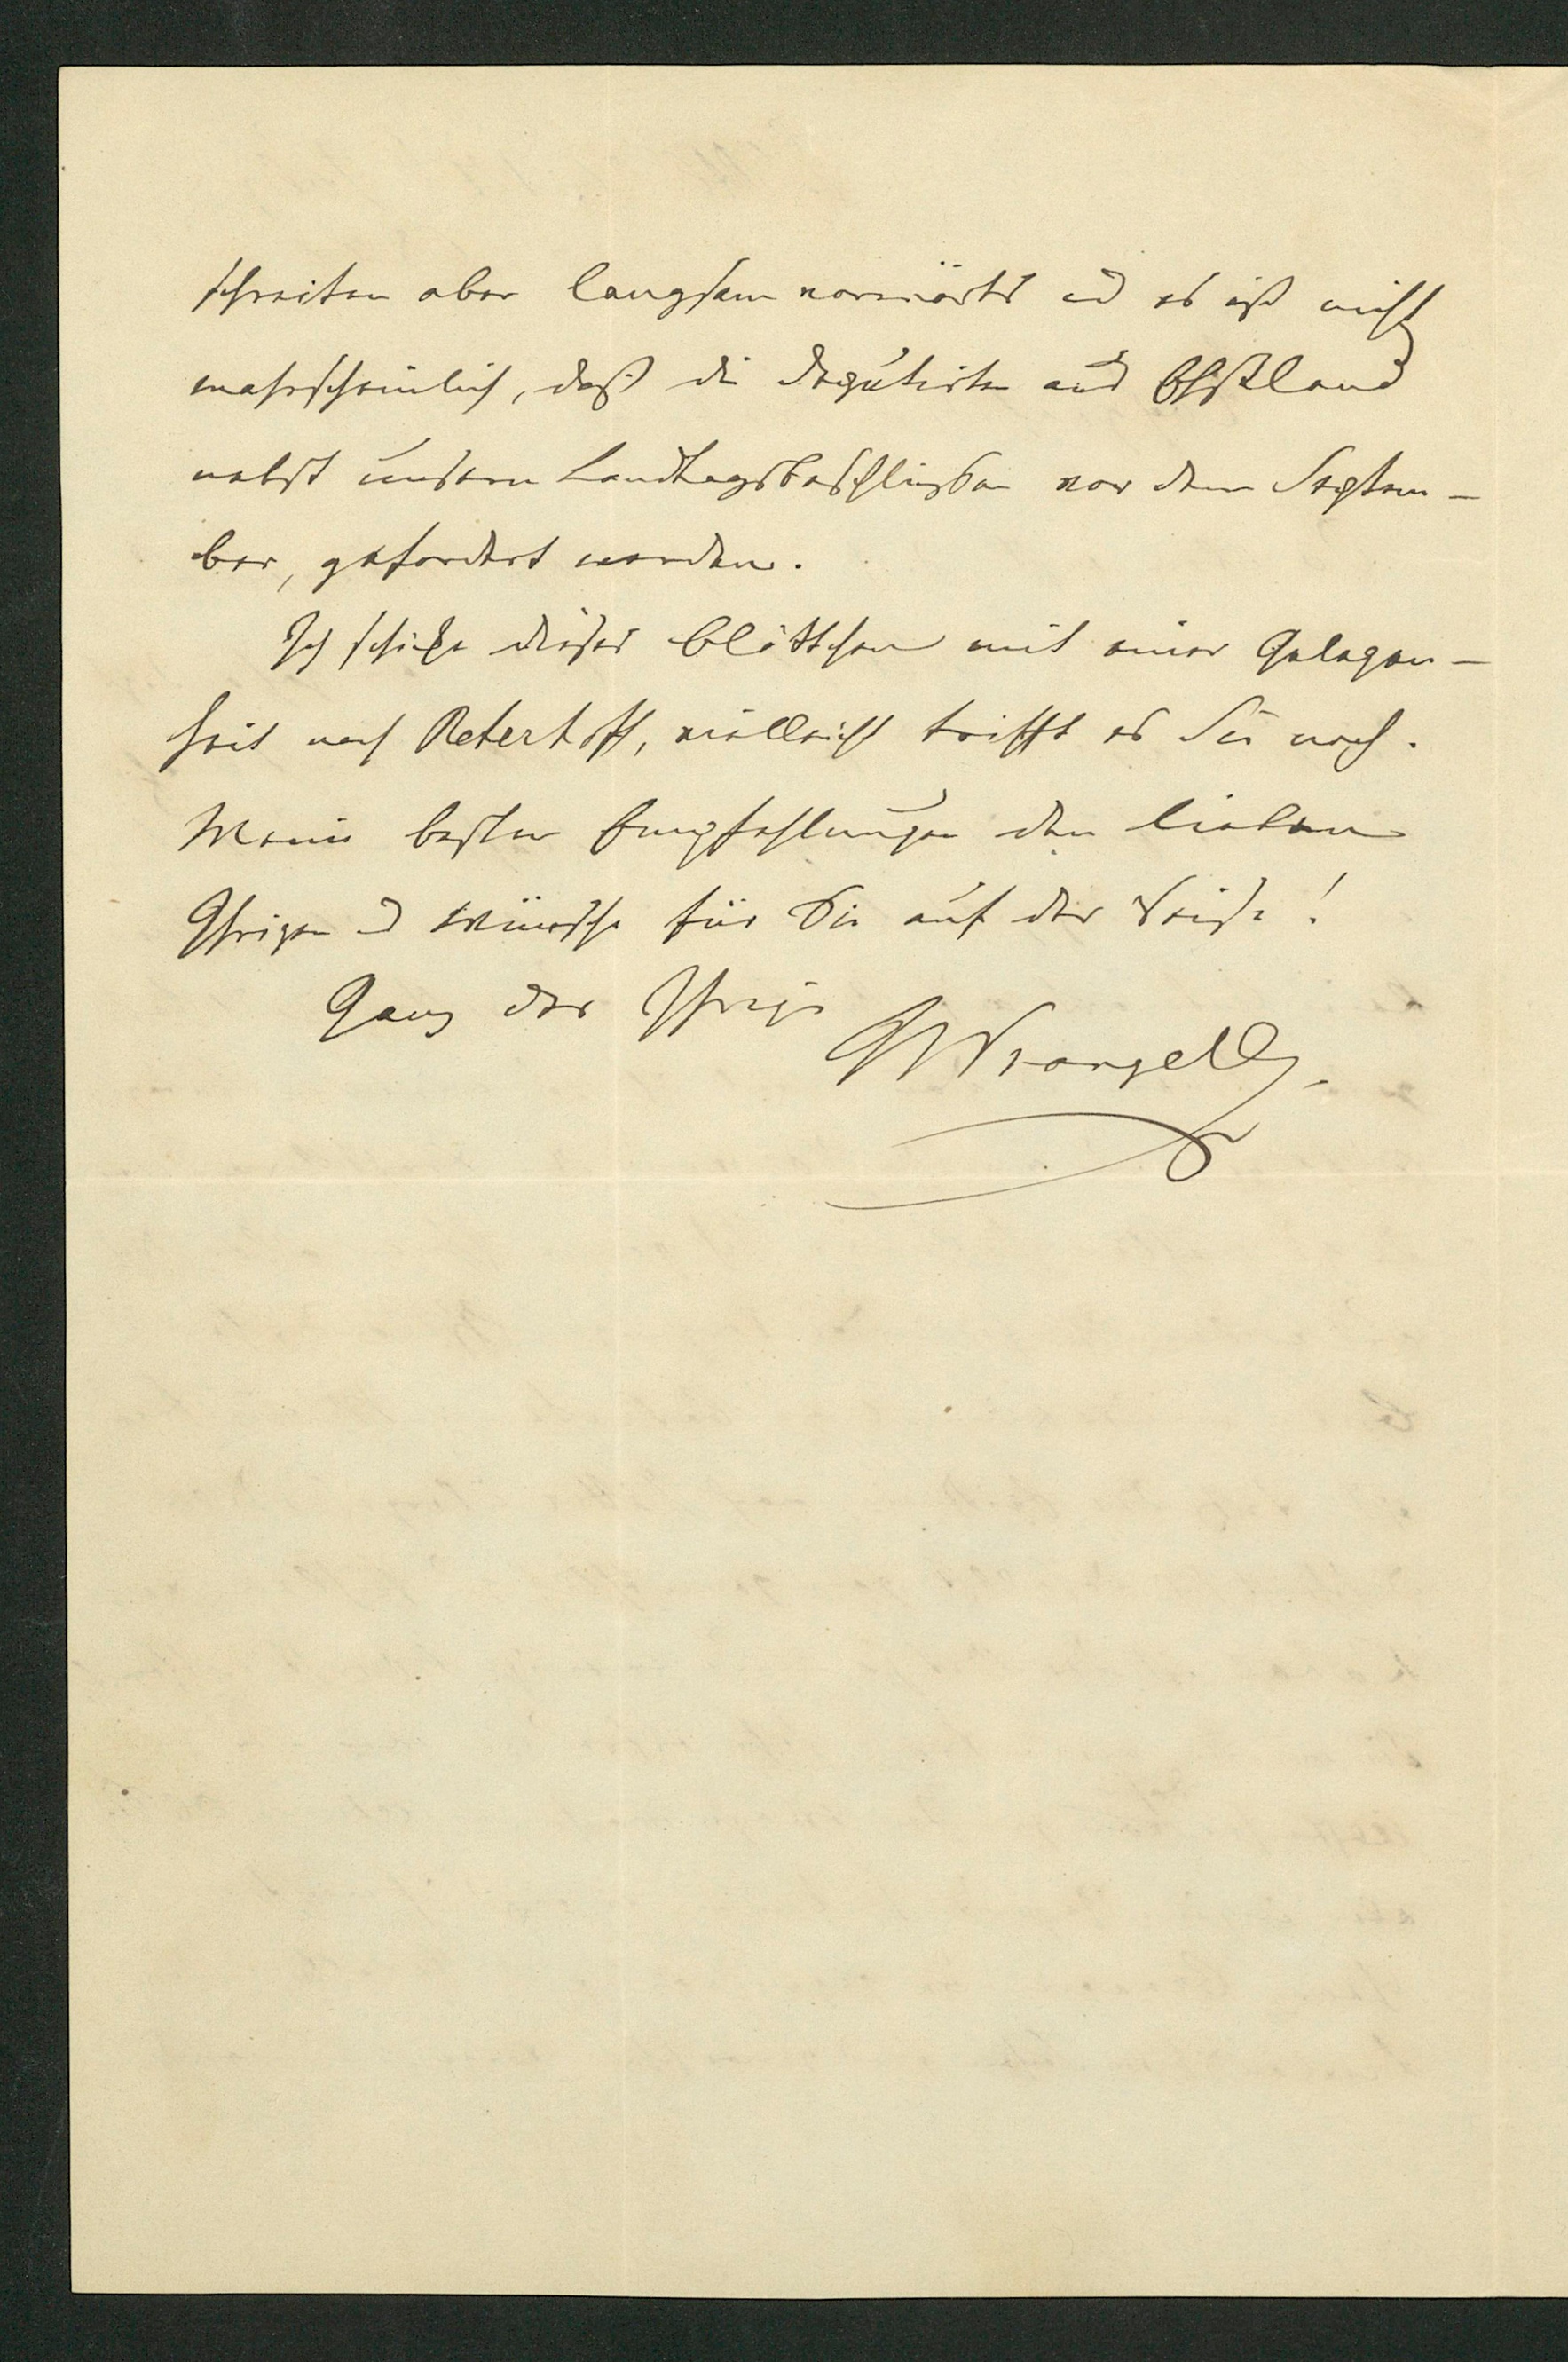 schreiten aber langsam vorwärts und es ist nicht
wahrscheinlich, daß die Deputirten aus Ehstland
nebst unseren Landtagsbeschlüssen vor dem Septem-
ber, gefordert werden.
Ich schicke dieses Blättchen mit einer Gelegen-
heit nach Peterhoff, vielleicht trifft es Sie noch.
Meine besten Empfehlungen den lieben
Ihrigen und Wünsche für Sie auf der Reise!
Ganz der Ihrige
Wrangell.